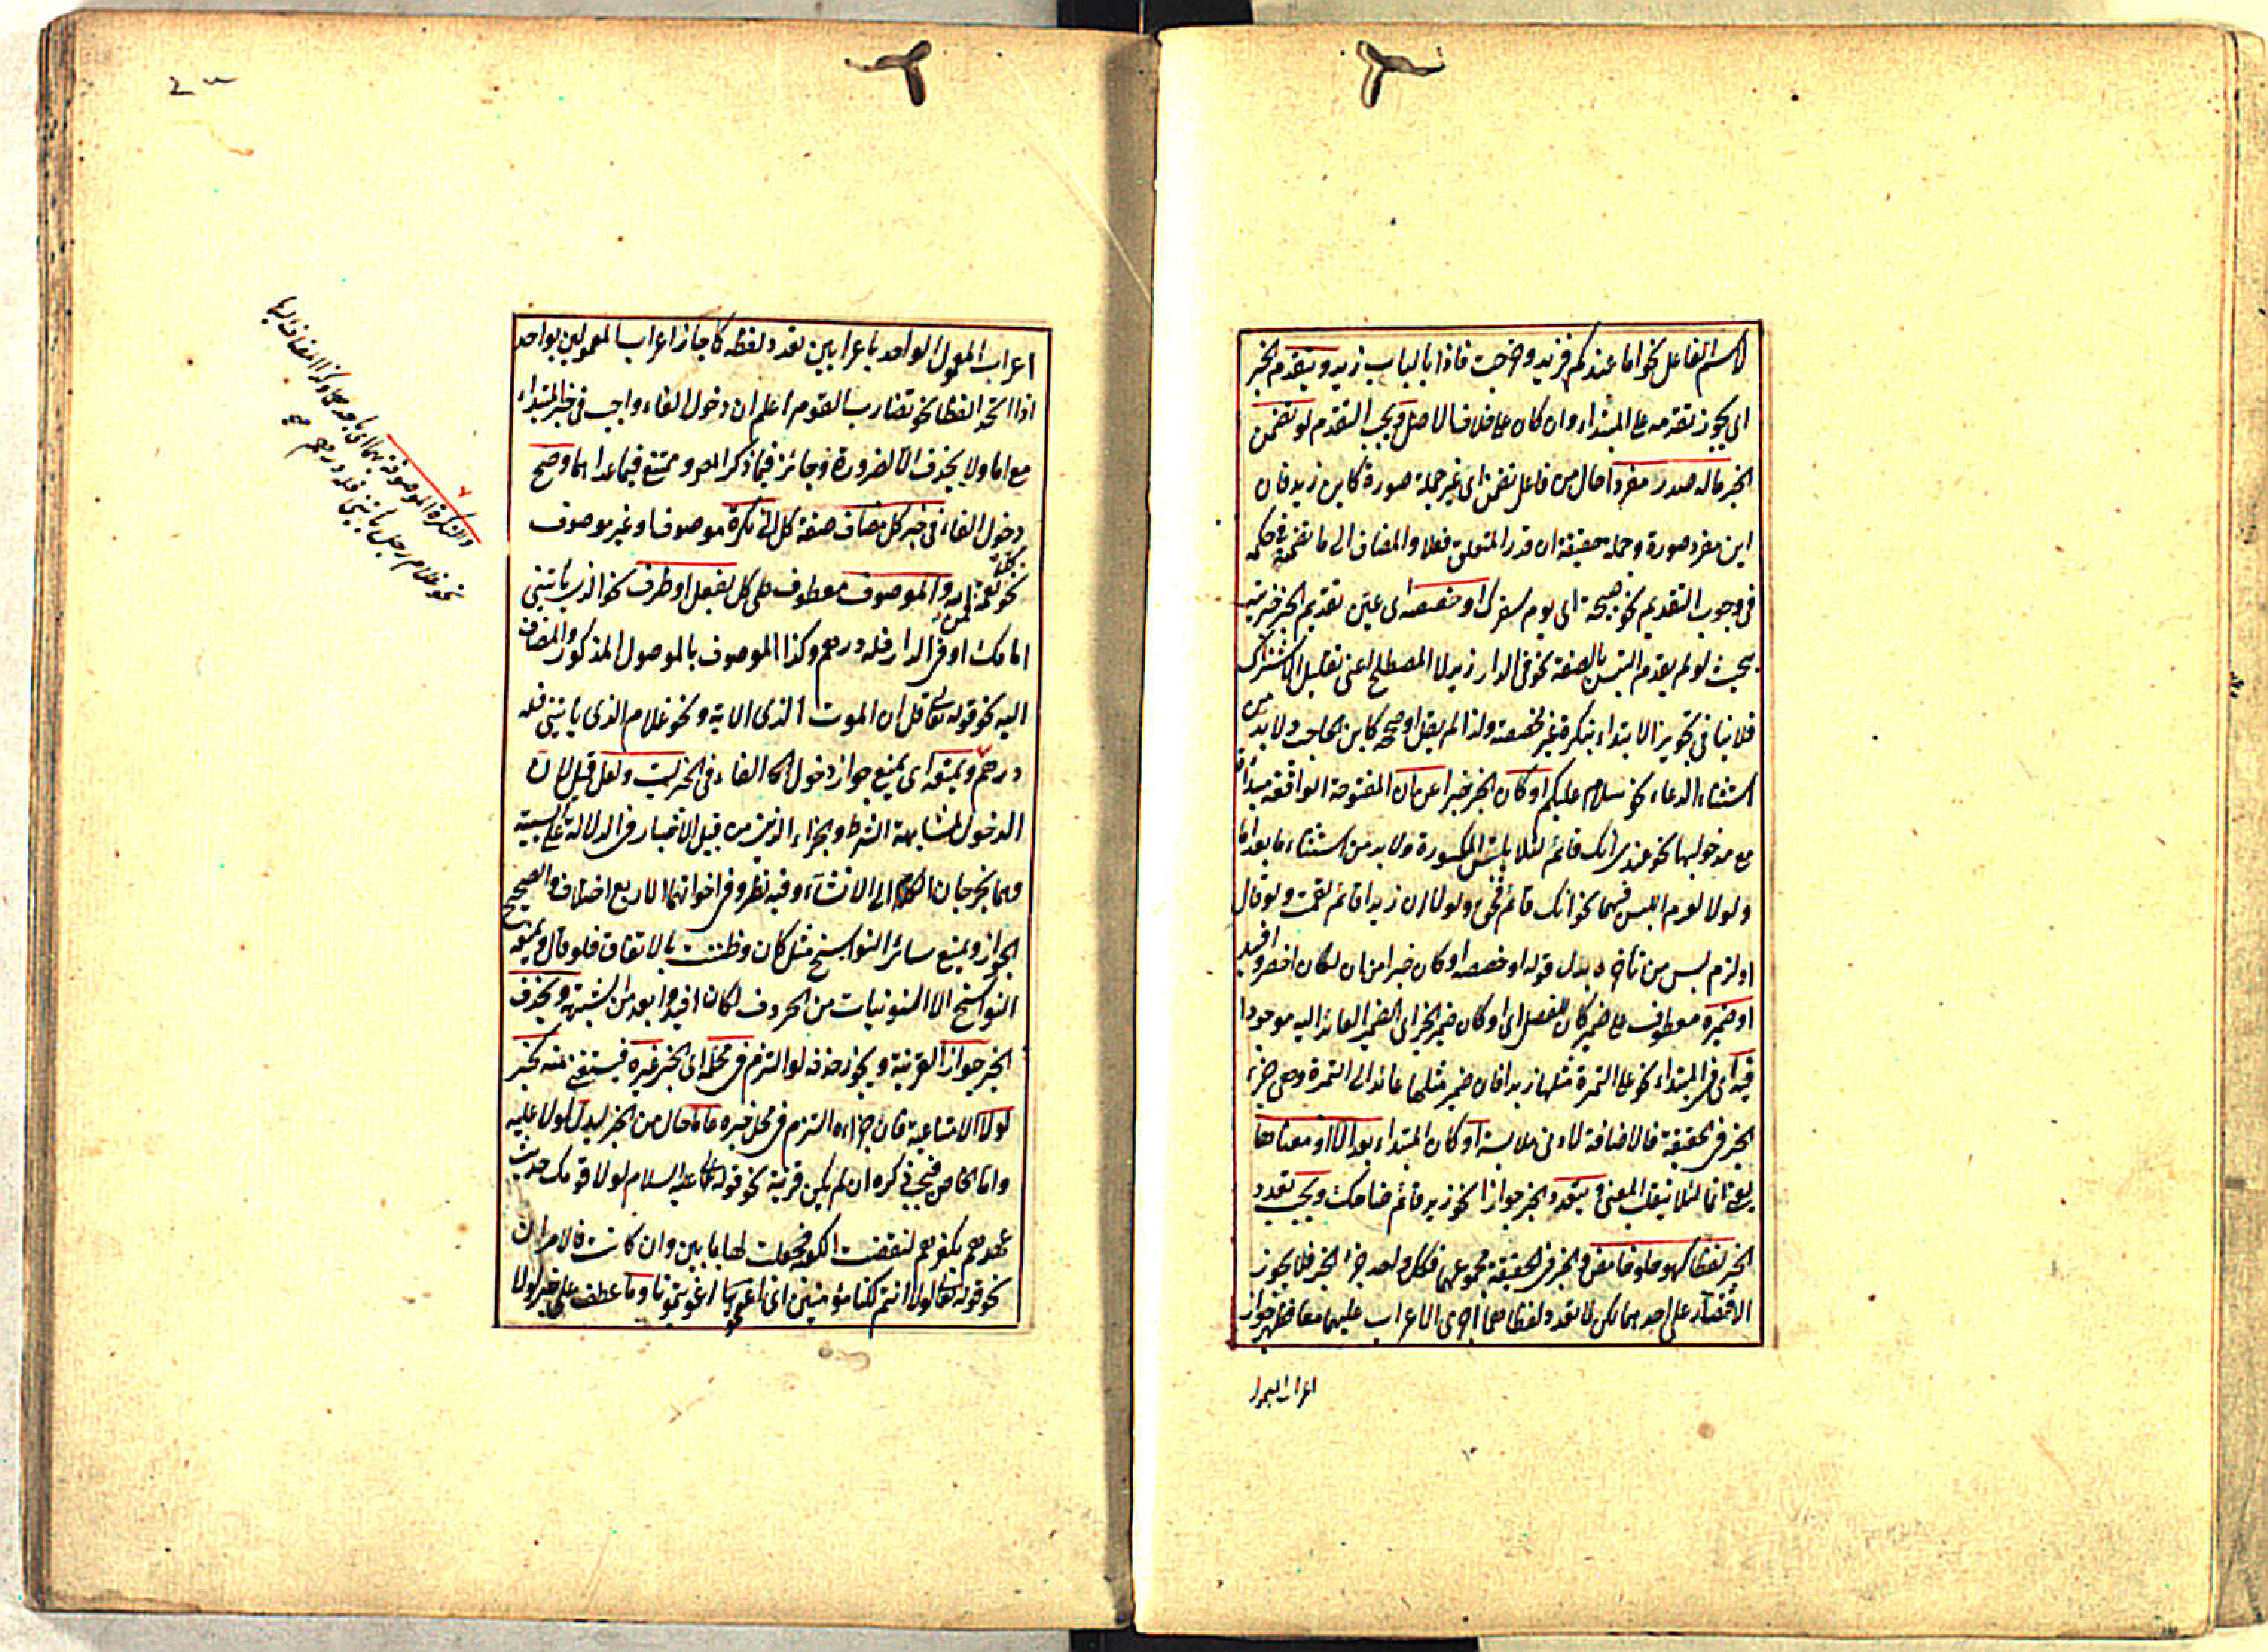 لاسم الفاعل نحو اما عندكم فزيد وخرجت فاذا بالباب زيد ويتقدم الخبر
اى يجوز تقدمه على المبتداء وان كان على خلاف الاصل ويجب التقدم لو تضمن
الخبر ماله صدر مفردا حال من فاعل تضمن اى غير جملة صورة كاين زيد فان
اين مفرد صورة وجملة حقيقة ان قدر المتعلق فعلا والمضاف الى ما تضمنه فى حكمه
فى وجوب التقديم نحو صبيحة اى يوم سفرك او خصصه اى عين تقديم الخبر خبريته
بحيث لو لم يقدم التبس بالصفة نحو فى الدار زيد لا المصطلح اعنى تقليل الاشتراك
فلا ينافى تجويز الابتداء بنكرة غير مخصصة ولذا لم يقل او صححه كابن الحاجب ولابد من
استثناء الدعاء نحو سلام عليكم او كان الخبر خبرا عن ان المفتوحة الواقعة مبتداة
مع مدخولها نحو عندى انك قائم لئلا يلتبس بالمكسورة ولابد من استثناء ما بعد اما
ولولا لعدم اللبس فيهما نحو انك قائم فحق ولولا ان زيدا قائم لقمت ولو قال
او لزم لبس من تاخره بدل قوله او خصصه او كان خبرا من ان لكان اخصر وافيد
او ضميره معطوف على ضمير كان للفصل اى او كان ضمير الخبر اى الضمير العائد اليه موجودا
فيه اى فى المبتداء نحو على التمرة مثلها زبدا فان ضمير مثلها عائد الى التمرة وهى جزء
الخبر فى الحقيقة فالاضافة لادنى ملابسة او كان المبتداء بعد الا او معناها
يعنى انما لئلا ينقلب المعنى ويتعدد الخبر جوازا نحو زيد قائم ضاحك ويجب تعدد
الخبر لفظا كهو حلو حامض والخبر فى الحقيقة مجموعهما فكل واحد جزء الخبر فلا يجوز
الاقتصار على احدهما لكن لا تعدد لفظا اجرى الاعراب عليهما معا فظهر جواز
اعراب المعمول
اعراب المعمول الواحد باعرابين تعدد لفظه كما جاز اعراب المعمولين بواحد
اذا اتحد لفظا نحو تضارب القوم اعلم ان دخول الفاء واجب فى خبر المبتداء
مع اما ولا يحذف الا لضرورة وجائز فيما ذكر المص وممتنع فيما عداهما وصح
دخول الفاء فى خبر كل مضاف صفة كل الى نكرة موصوفا وغير موصوف
نحو كل نعمة فمن الله والموصوف معطوف على كل بفعل او ظرف نحو الذى ياتينى
امامك او فى الدار فله درهم وكذا الموصوف بالموصول المذكور والمضاف
اليه نحو قوله تعالى قل ان الموت الذى الاية ونحو غلام الذى ياتينى فله
درهم ويمنعه اى يمنع جواز دخول الفاء فى الخبر ليت ولعل قيل لان
الدخول لمشابهة الشرط والجزاء الذين من قبيل الاخبار فى الدلالة على السببية
وهما يخرجان الكلام الى الانشاء وفيه نظر وفى اخواتهما الاربع اختلاف والصحيح
الجواز ويمنع سائر النواسخ مثل كان وظننت بالاتفاق فلو قال ويمنعه
النواسخ الا النونيات من الحروف لكان افيد وابعد من الشبهة ويحذف
الخبر جوازا لقرينة ويجوز حذفه لو التزم فى محله اى الخبر غيره فيستغنى عنه كخبر
لولا الامتناعية فان جزاءه التزم فى محل خبره عاما حال من الخبر ليدل لولا عليه
واما الخاص فيجب ذكره ان لم يكن قرينة نحو قوله عليه السلام لولا قومك حديث
عهدهم بكفرهم لنقضت الكعبة فجعلت لها بابين وان كانت فالامران
نحو قوله تعالى لولا انتم لكنا مؤمنين اى اغويتمونا وما عطف على خبر لولا
والنكرة الموصوفة بهما اى باحدهما وكذا المضاف اليها
نحو غلام رجل ياتينى فله درهم صح